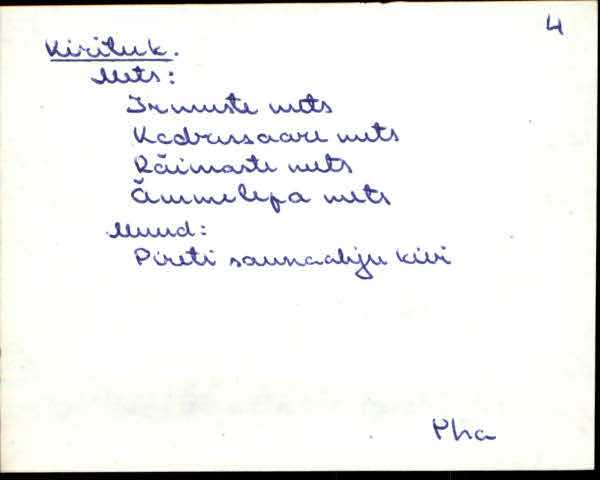 4
Kirituk.
Mets:
Irmuste mets
Kadrussaare mets
Räimaste mets
Ämmelepa mets
Muud:
Pireti saunaahju kivi
Pha